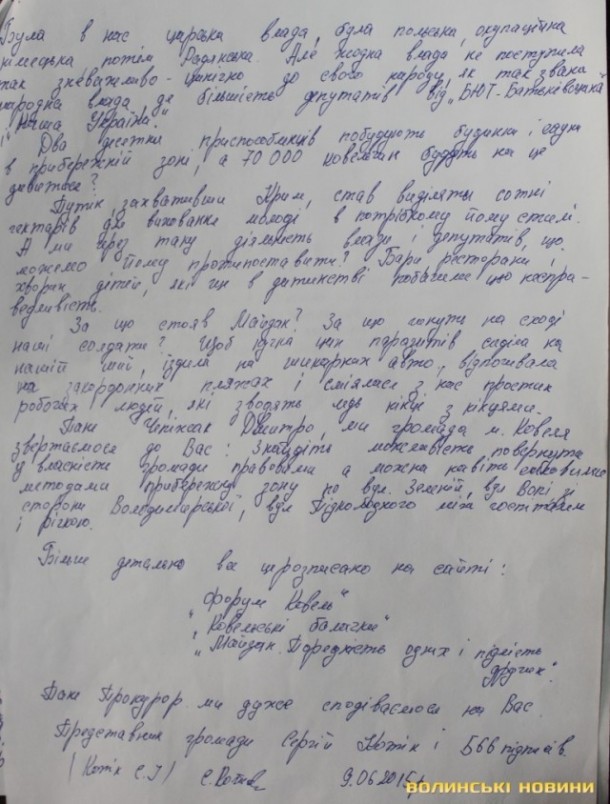 Була в нас царська влада, була польська, окупаційна
німецька потім Радянська. Але жодна влада не поступила
так зневажливо-цинічно до свого народу, як так звана
народна влада де більшість депутатів від „БЮТ-Батьківщина"
і „Наша Україна".
Два десятки приспособнців побудують будинки і садки
в прибережній зоні, а 70 000 ковельчан будуть на це
дивитися?
Путін, захвативши Крим, став виділяти сотні
гектарів для виховання молоді в потрібному йому стилі.
А ми через таку діяльність влади і депутатів, що
можемо йому протипоставити? Бари ресторани і
хворих дітей, які ще в дитинстві побачили цю неспра-
ведливість.
За що стояв Майдан? За що гинуть на сході
наші солдати? Щоб кучка цих паразитів сиділа на
нашій шиї, їздила на шикарних авто, відпочивала
на закордонних пляжах і сміялася з нас простих
робочих людей, які зводять ледь кінці з кінцями.
Пане Дмитро, ми громада м. Ковеля
звертаємося до Вас: Знайдіть можливість повернути
у власність громади правовими а можна навіть силовими
методами прибережну зону по вул. Зеленій, вул Волі зі
сторони Володимирської, вул між
і річкою.
Більш детально все це розписано на сайті:
„Форум Ковель"
„Ковельські балачки"
„Майдан. Порядність одних і підлість
других".
Пане Прокурор ми дуже сподіваємося на Вас.
Представник громади Сергій Котік і 566 підписів.
(Котік С.І) 9.06.2015р.
ВОЛИНСЬКІ НОВИНИ